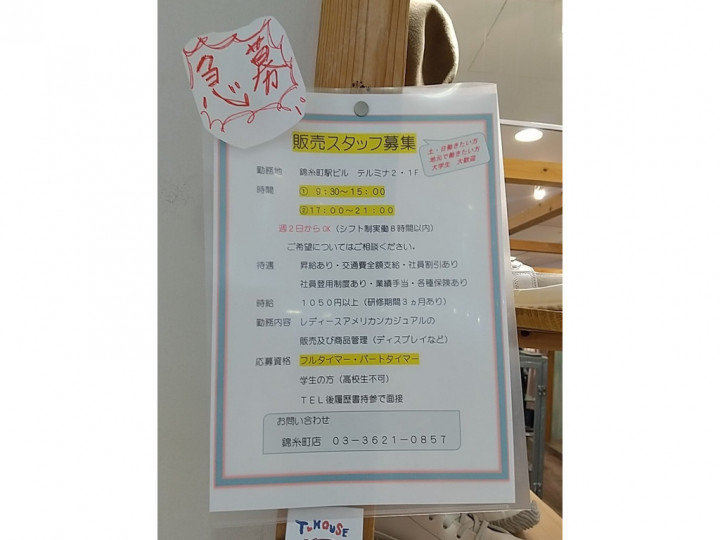 急募
販売スタッフ募集
土・日働きたい方
地元で働きたい方
大学生 大歓迎
勤務地 錦糸町駅ビル テルミナ2・1F
時間 ① 9:30～15:00
②17:00～21:00
週2日からOK（シフト制実働8時間以内）
ご希望についてはご相談ください。
待遇 昇給あり・交通費全額支給・社員割引あり
社員登用制度あり・業績手当・各種保険あり
時給 1050円以上（研修期間3ヵ月あり）
勤務内容 レディースアメリカンカジュアルの
販売及び商品管理（ディスプレイなど）
応募資格 フルタイマー・パートタイマー
学生の方（高校生不可）
TEL後履歴書持参で面接
お問い合わせ
錦糸町店 03-3621-0857